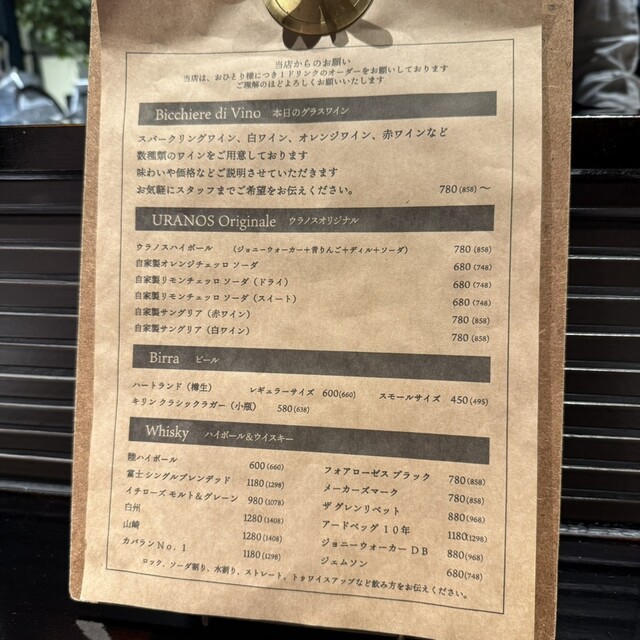 当店からのお願い
当店は、おひとり様につき1ドリンクのオーダーをお願いしております
ご理解のほどよろしくお願いいたします
Bicchiere di Vino 本日のグラスワイン
スパークリングワイン、白ワイン、オレンジワイン、赤ワインなど
数種類のワインをご用意しております
味わいや価格などご説明させていただきます
お気軽にスタッフまでご希望をお伝えください。 780 (858) ～
URANOS Originale ウラノスオリジナル
ウラノスハイボール （ジョニーウォーカー＋青りんご＋ディル＋ソーダ） 780 (858)
自家製オレンジチェッロ ソーダ 680 (748)
自家製リモンチェッロ ソーダ（ドライ） 680 (748)
自家製リモンチェッロ ソーダ（スイート） 680 (748)
自家製サングリア（赤ワイン） 780 (858)
自家製サングリア（白ワイン） 780 (858)
Birra ビール
ハートランド（樽生） レギュラーサイズ 600(660) スモールサイズ 450(495)
キリン クラシックラガー（小瓶） 580(638)
Whisky ハイボール＆ウイスキー
陸ハイボール 600(660)
富士シングルブレンデッド 1180(1298)
イチローズ モルト＆グレーン 980(1078)
白州 1280(1408)
山崎 1280(1408)
カバランNo.1 1180(1298)
フォアローゼス ブラック 780(858)
メーカーズマーク 780(858)
ザ グレンリベット 880(968)
アードベッグ 10年 1180(1298)
ジョニーウォーカー DB 880(968)
ジェムソン 680(748)
ロック、ソーダ割り、水割り、ストレート、トゥワイスアップなど飲み方をお伝えください。